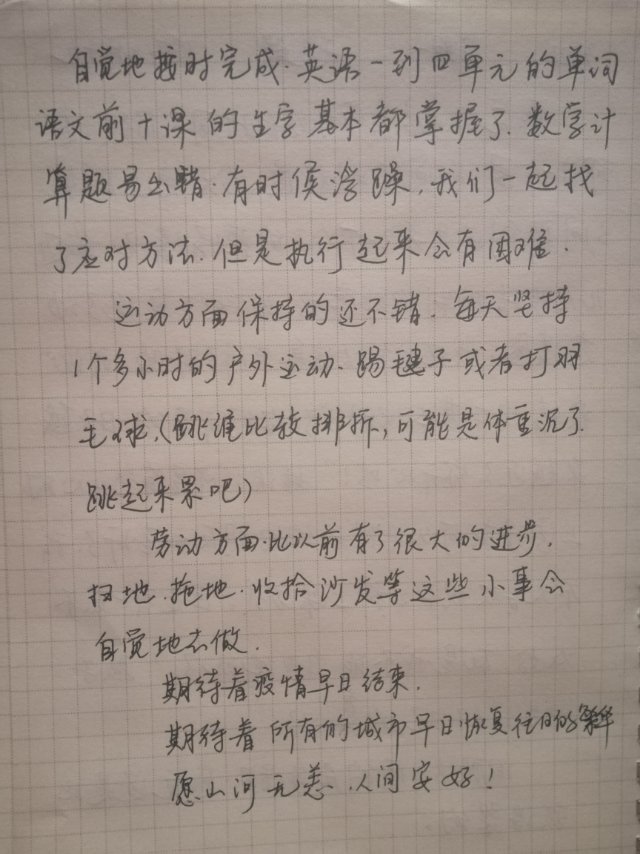 自觉地按时完成.英语一到四单元的单词
语文前十课的生字基本都掌握了.数学计
算题易出错.有时侯浮躁,我们一起找
了应对方法.但是执行起来会有困难.
运动方面保持的还不错.每天坚持
1个多小时的户外运动.踢毽子或者打羽
毛球.(跳绳比较排拆,可能是体重沉了
跳起来累吧)
劳动方面.比以前有了很大的进步.
扫地.拖地.收拾沙发等这些小事会
自觉地去做.
期待着疫情早日结束.
期待着所有的城市早日恢复往日的繁华
愿山河无恙.人间安好!